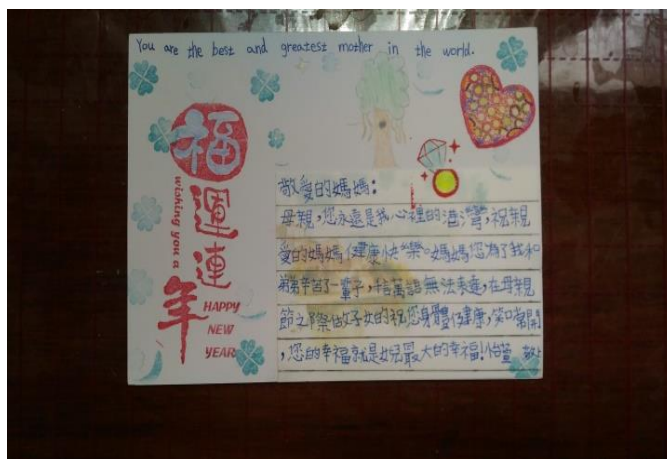 You are the best and greatest mother in the world.
福
運連年
wishing you a
HAPPY
NEW
YEAR
敬愛的媽媽:
母親,您永遠是我心裡的港灣,祝親
愛的媽媽健康快樂。媽媽您為了我和
弟弟辛苦了一輩子,千言萬語無法表達,在母親
節之際做子女的祝您身體健康,笑口常開
,您的幸福就是女兒最大的幸福!怡萱 敬上